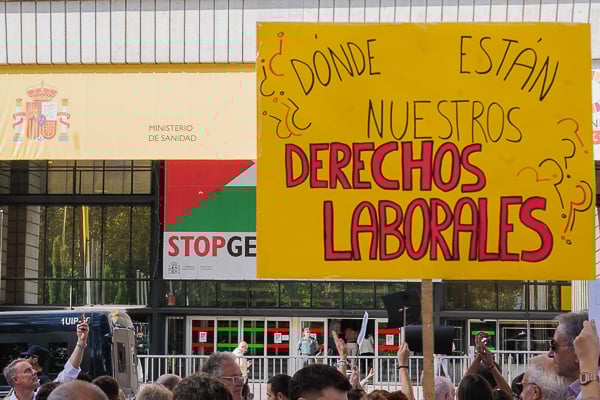 ¿DÓNDE ESTÁN
NUESTROS
DERECHOS
LABORALES
???
MINISTERIO
DE SANIDAD
STOPGE
1UIP